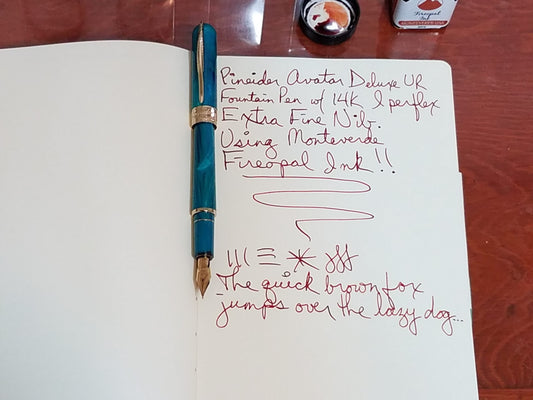 Fireopal
Ink
MONTEVERDE USA
Pineider Avatar Deluxe UR
Fountain Pen w/ 14K Iperflex
Extra Fine Nib.
Using Monteverde
Fireopal Ink!!
The quick brown fox
jumps over the lazy dog...